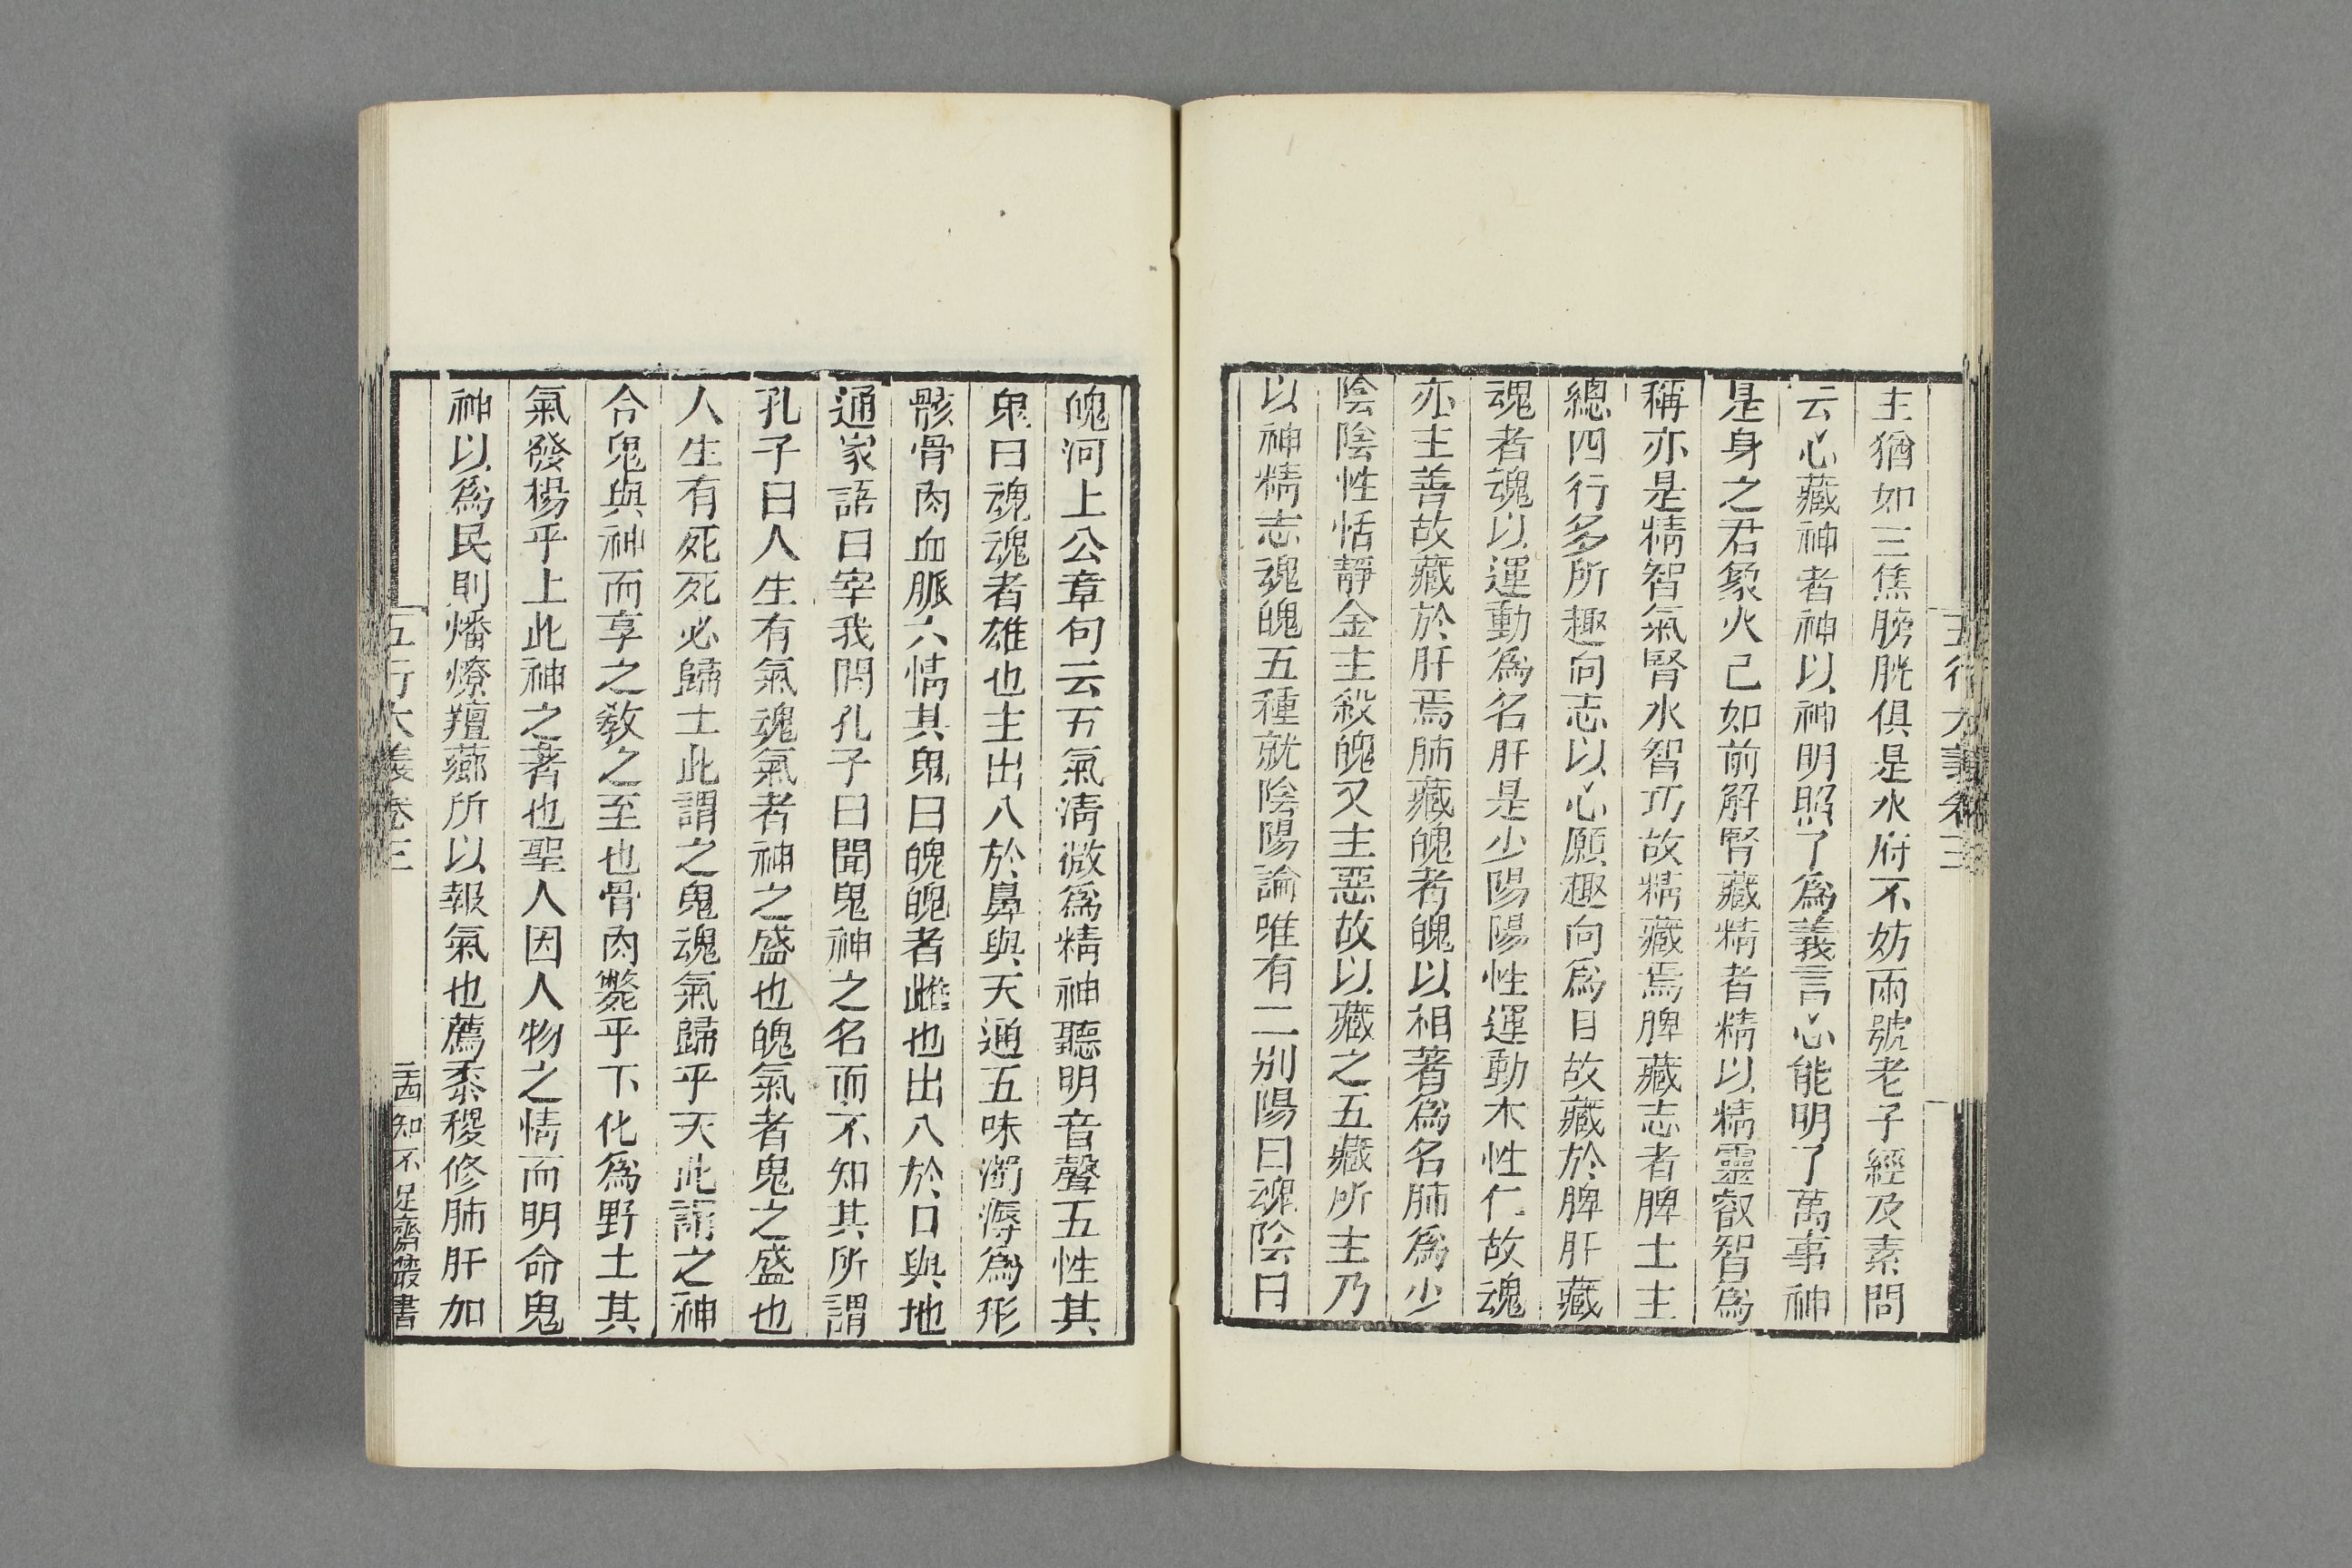 五行大義卷三
主猶如三焦膀胱俱是水府不妨兩號老子經及素問
云心藏神者神以神明照了爲義言心能明了萬事神
是身之君象火己如前解腎藏精者精以精靈叡智爲
稱亦是精智氣腎水智巧故精藏焉脾藏志者脾土主
總四行多所趣向志以心願趣向爲目故藏於脾肝藏
魂者魂以運動爲名肝是少陽陽性運動木性仁故魂
亦主善故藏於肝焉肺藏魄者魄以相著爲名肺爲少
陰陰性恬靜金主殺魄又主惡故以藏之五藏所主乃
以神精志魂魄五種就陰陽論唯有二别陽曰魂陰曰
魄河上公章句云五氣清微爲精神聽明音聲五性其
鬼曰魂魂者雄也主出入於鼻與天通五味濁溽爲形
骸骨肉血脈六情其鬼曰魄魄者雌也出入於口與地
通家語曰宰我問孔子曰聞鬼神之名而不知其所謂
孔子曰人生有氣魂氣者神之盛也魄氣者鬼之盛也
人生有死死必歸土此謂之鬼魂氣歸乎天此謂之神
合鬼與神而享之教之至也骨肉斃乎下化爲野土其
氣發楊乎上此神之著也聖人因人物之情而明命鬼
神以爲民則燔燎羶薌所以報氣也薦黍稷修肺肝加
五行大義卷三
二十四知不足齋叢書